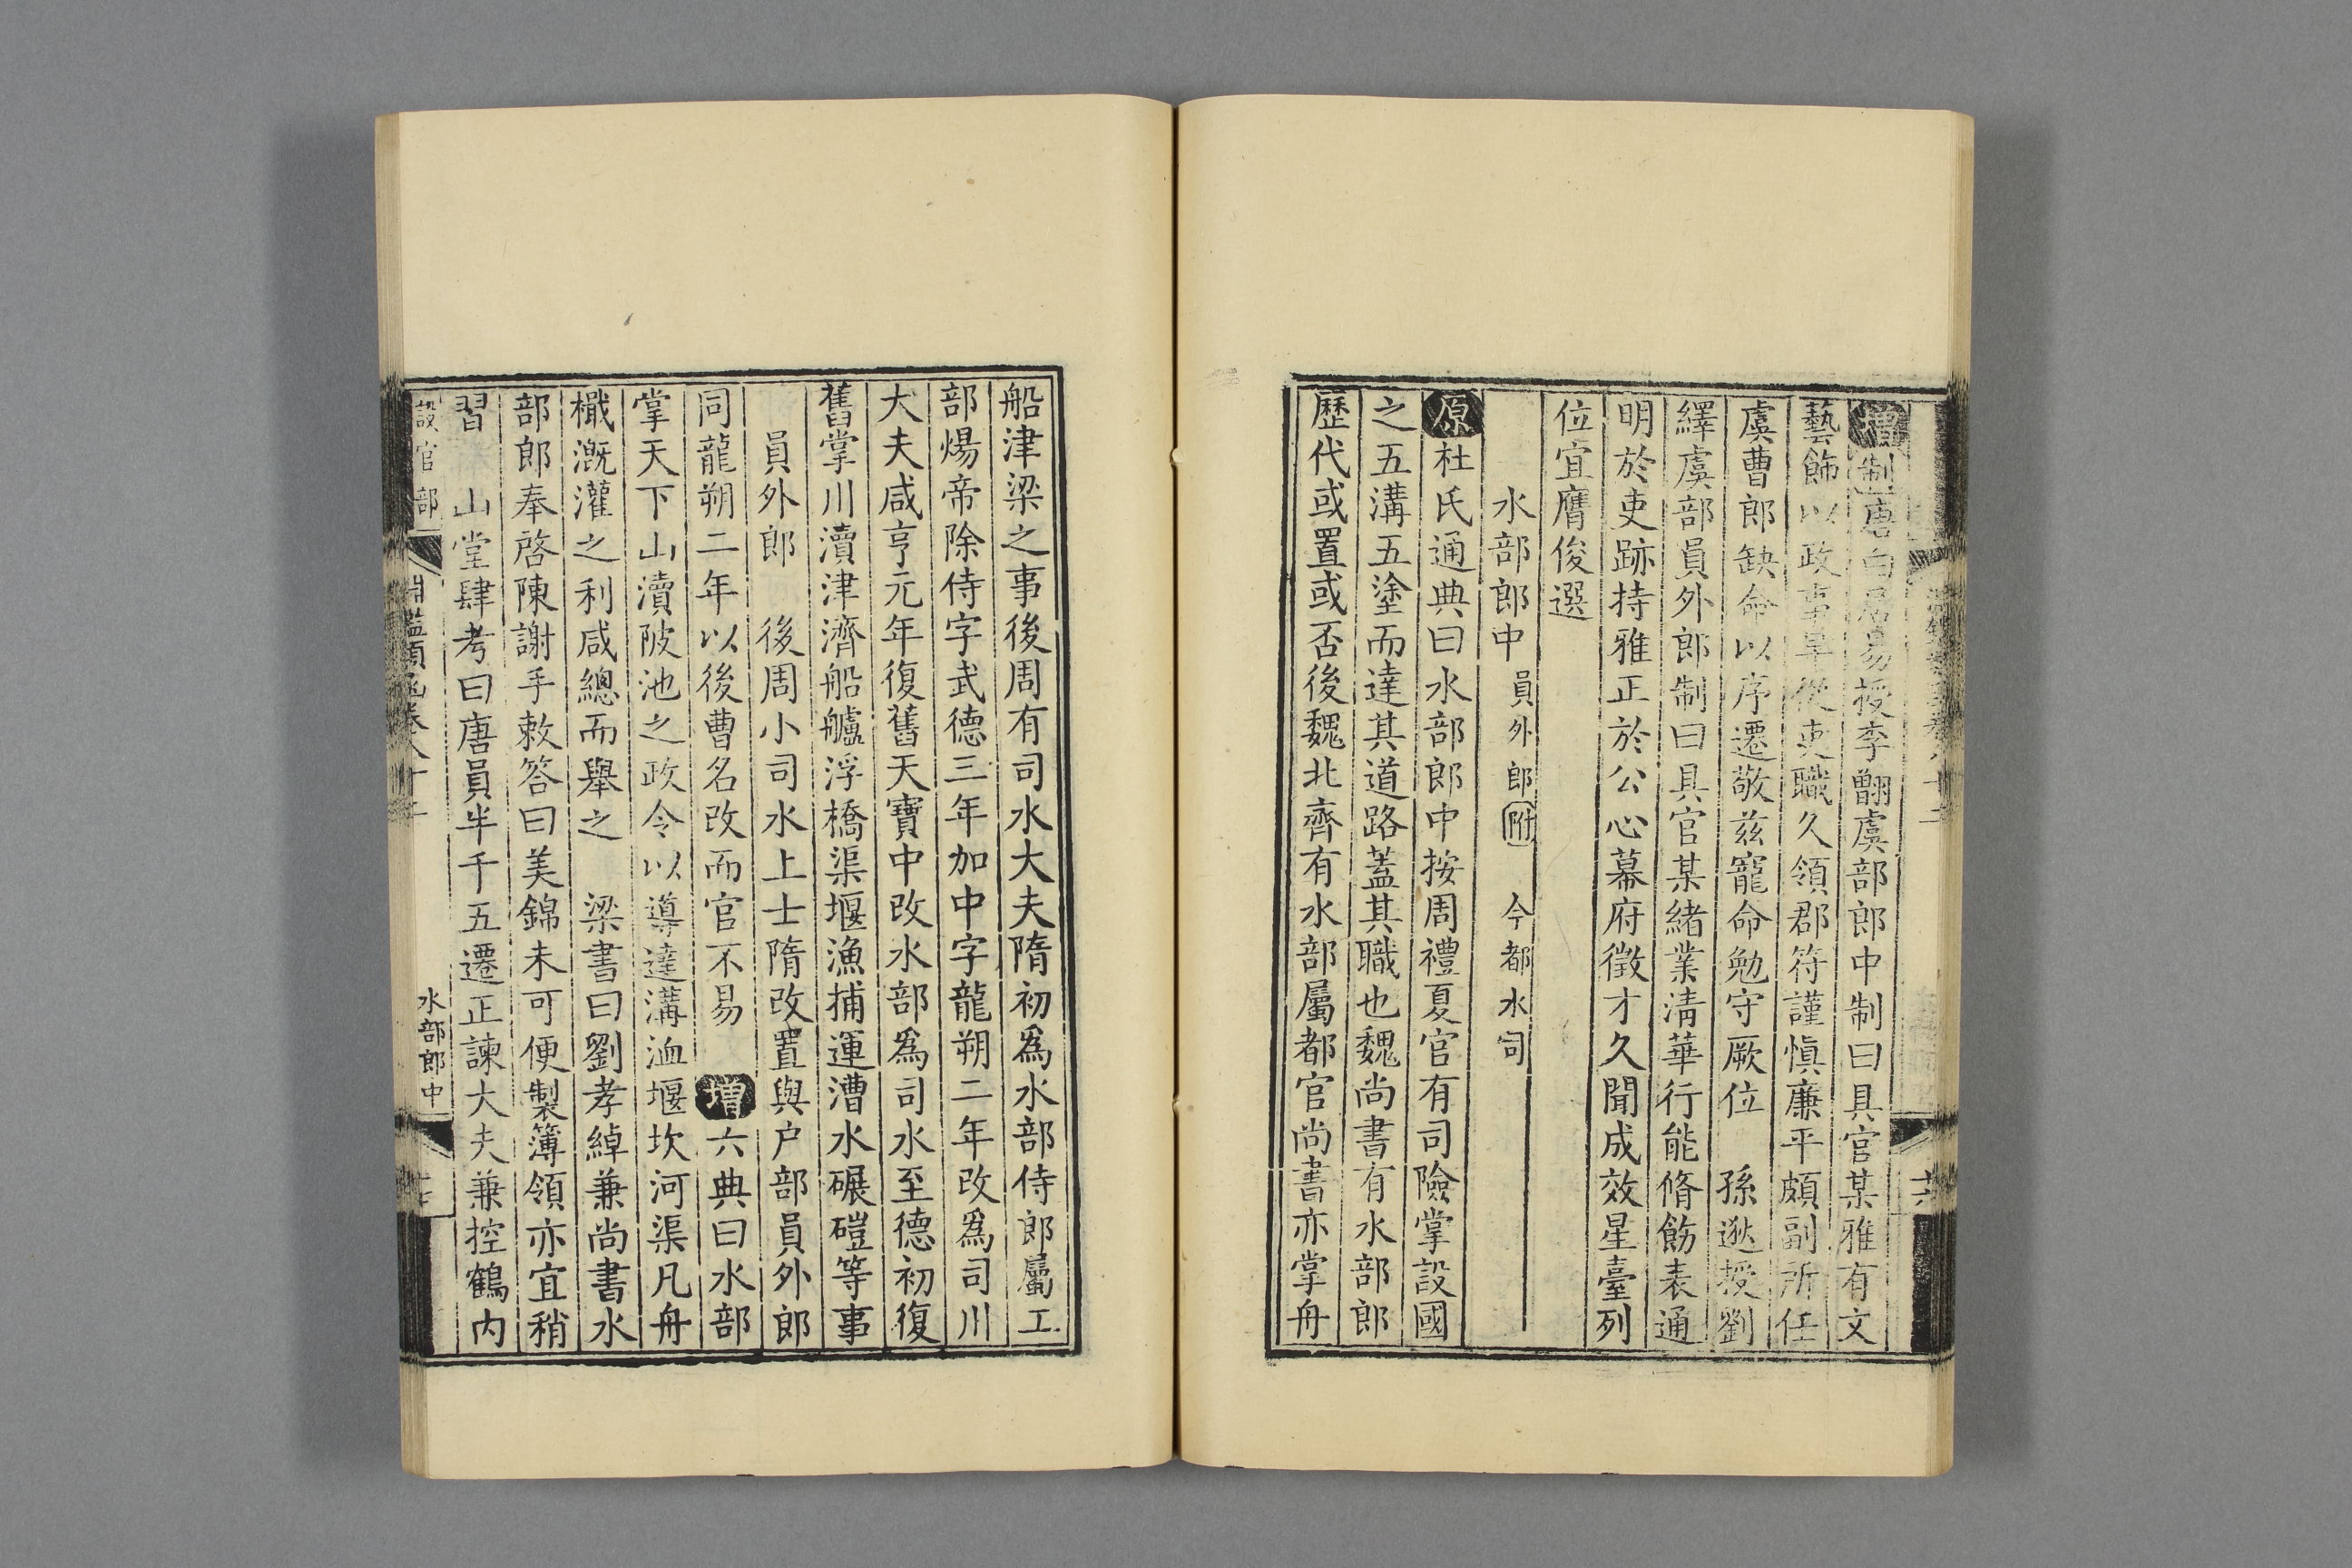 增制唐白居易授李翺虞部郎中制曰具官某雅有文
藝飾以政事早從吏職久領郡符謹慎廉平頗副所任
虞曹郎缺命以序遷敬茲寵命勉守厥位　孫逖授劉
繹虞部員外郎制曰具官某緒業清華行能脩飭表通
明於吏跡持雅正於公心幕府徵才久聞成效星臺列
位宜膺俊選
水部郎中　員外郎附　今都水司
原杜氏通典曰水部郎中按周禮夏官有司險掌設國
之五溝五塗而達其道路蓋其職也魏尚書有水部郎
歷代或置或否後魏北齊有水部屬都官尚書亦掌舟
船津梁之事後周有司水大夫隋初爲水部侍郎屬工
部煬帝除侍字武德三年加中字龍朔二年改爲司川
大夫咸亨元年復舊天寶中改水部爲司水至德初復
舊掌川瀆津濟船艫浮橋渠堰漁捕運漕水碾磑等事
員外郎　後周小司水上士隋改置與户部員外郎
同龍朔二年以後曹名改而官不易　增六典曰水部
掌天下山瀆陂池之政令以導達溝洫堰坎河渠凡舟
檝溉灌之利咸總而舉之　梁書曰劉孝綽兼尚書水
部郎奉啓陳謝手敕答曰美錦未可便製簿領亦宜稍
習　山堂肆考曰唐員半千五遷正諫大夫兼控鶴内
設官部　淵鑑類函卷八十二　水部郎中